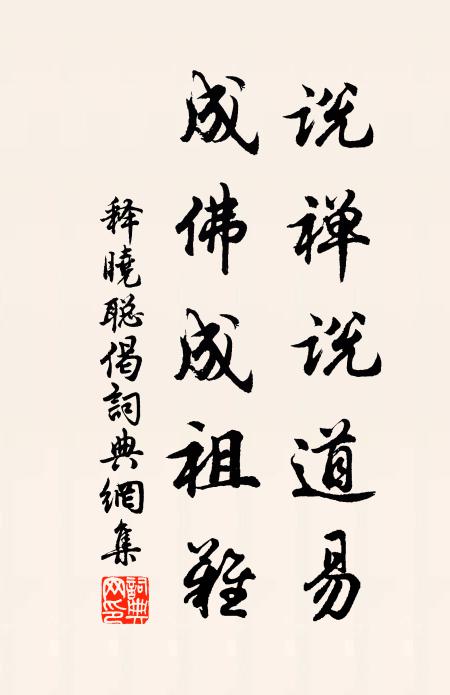 说禅说道易
成佛成祖难
释曉聪偈詞典網集
詞典网印